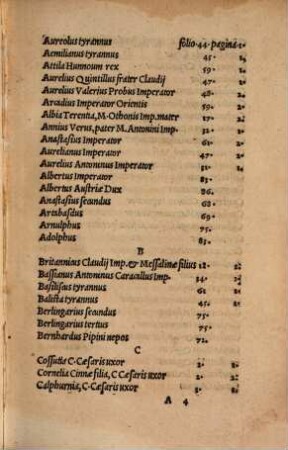 Aureolus tyrannus folio.44. pagina 1.
Aemilianus tyrannus 45. 1.
Attila Hunnorum rex 59. 2.
Aurelius Quintillus frater Claudij 47. 1.
Aurelius Valerius Probus Imperator 48. 2.
Arcadius Imperator Orientis 59. 1.
Albia Terentia, M. Othonis Imp. mater 17. 1.
Annius Verus, pater M. Antonini Imp. 31. 2.
Anastasius Imperator 61. 2.
Aurelianus Imperator 47. 2.
Aurelius Antoninus Imperator 31.
Albertus Imperator 83.
Albertus Austriæ Dux 86.
Anastasius secundus 68.
Artabasdus 69.
Arnulphus 75.
Adolphus 83.
B
Britannicus Claudij Imp. & Messalinæ filius 12. 2.
Bassianus Antoninus Caracallus Imp. 34.
Basiliscus tyrannus 61. 2.
Balista tyrannus 45. 2.
Berlingarius secundus 75.
Berlingarius tertius 75.
Bernhardus Pipini nepos 72.
C
Cossutia C. Cæsaris uxor 2. 2.
Cornelia Cinnæ filia, C Cæsaris uxor 3. 2.
Calphurnia, C. Cæsaris uxor 3. 2.
A 4